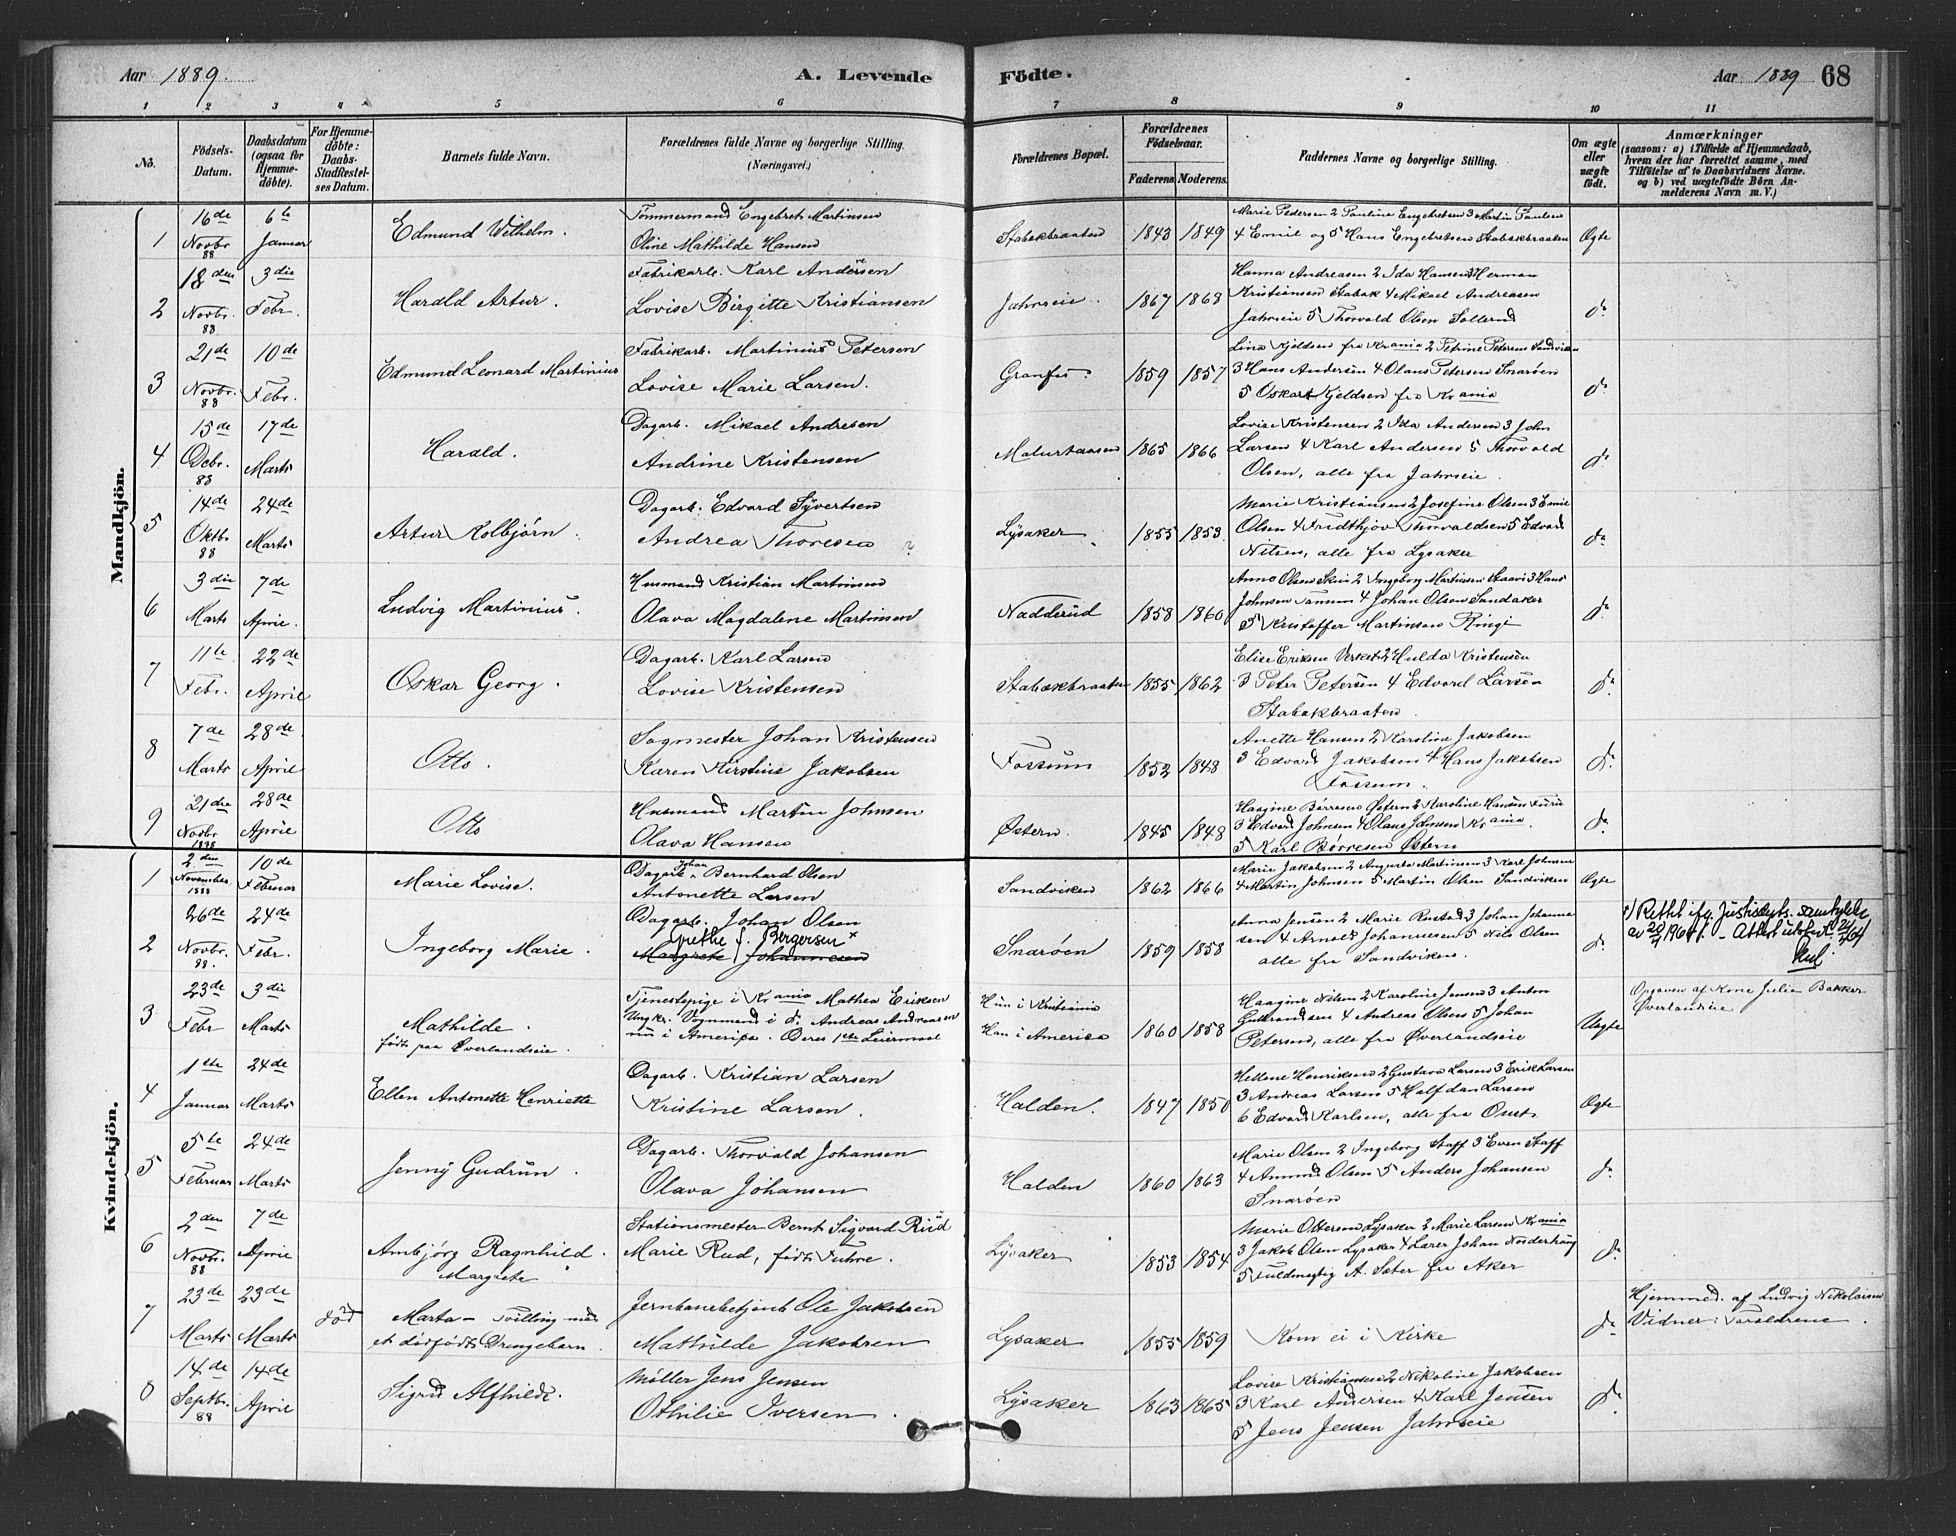 Aar 1889. A. Levende Födte. Aar 1889 68
1 2 3 4 5 6 7 8 9 10 11
No. Födsels-Datum. Daabsdatum (ogsaa for Hjemmedöbte). For Hjemmedöbte: Daabs-Stadfæstelses Datum. Barnets fulde Navn. Forældrenes fulde Navne og borgerlige Stilling. (Næringsvei.) Forældrenes Bopæl. Forældrenes Födselsaar. Faderens Moderens Faddernes Navne og borgerlige Stilling. Om ægte eller uægte födt. Anmærkninger
(saasom: a) i Tilfælde af Hjemmedaab, hvem der har forrettet samme, med Tilföielse af to Daabsvidners Navne. og b) ved uægtefödte Börn Anmelderens Navn m. V.)
Mandkjön.
1 16de Novbr 88 6te Januar Edmund Wilhelm. Tømmermand Engebret Martinsen
Oline Mathilde Hansen Stabækbraaten 1843 1849 Marie Pedersen 2 Pauline Engebretsen 3 Martin Paulsen
4 Emil og 5 Hans Engebretsen Stabækbraaten Ægte
2 18den Novbr. 88 3die Febr. Harald Artur. Fabrikarb. Karl Andersen
Lovise Birgitte Kristiansen Jahrseie 1867 1868 Hanna Andreasen 2 Ida Hansen 3 Herman
Kristiansen Stabæk 4 Mikael Andreasen
Jahrseie 5 Thorvald Olsen Sollerud do
3 21de Novbr. 88 10de Febr. Edmund Leonard Martinius Fabrikarb. Martinius Petersen
Lovise Marie Larsen. Granfos 1859 1857 Lina Kjeldsen fra Krania 2 Petrine Petersen Sandviken
3 Hans Andersen 4 Olaus Petersen Snarøen
5 Oskar Kjeldsen fra Krania do
4 15de Decbr. 88 17de Marts Harald. Dagarb. Mikael Andresen
Andrine Kristensen 1865 1866 Lovise Kristensen 2 Ida Andersen 3 John
Larsen 4 Karl Andersen 5 Thorvald
Olsen, alle fra Jahrseie. do
5 14de Oktbr 88 24de Marts Artur Kolbjørn. Dagarb. Edvard Syvertsen
Andrea Thoresen ? Lysaker 1855 1853 Marie Kristiansen 2 Josefine Olsen 3 Emil
Olsen 4 Fridthjov Thorvaldsen 5 Edvard
Nilsen, alle fra Lysaker do
6 3die Marts 7de April. Ludvig Martinius. Husmand Kristian Martinsen
Olava Magdalene Martinsen Nadderud 1858 1860 Anna Olsen Skui 2 Ingeborg Martinsen Staavi 3 Hans
Johnsen Tanum 4 Johan Olsen Sandaker
5 Kristoffer Martinsen Ringi do
7 11te Febr. 22de April Oskar Georg. Dagarb. Karl Larsen
Lovise Kristensen Stabækbraaten 1855 1862 Elise Eriksen Værket 2 Hulda Kristensen
3 Peter Petersen 4 Edvard Larsen
Stabækbraaten. do
8 7de Marts 28de April Otto. Sagmester Johan Kristensen
Karen Kirstine Jakobsen Fossum 1852 1848 Anette Hansen 2 Karoline Jakobsen
3 Edvard Jakobsen 4 Hans Jakobsen
Fossum. do
9 21de Novbr 1888 28de April Otto Husmand Martin Johnsen
Olava Hansen Østern. 1845 1848 Haagine Børresen Østern 2 Karoline Hansen Furu
3 Edvard Johnsen 4 Olaus Johnsen Krania.
5 Karl Børresen Østern do
Kvindekjön.
1 2den November 1888 10de Februar Marie Lovise. Dagarb. Johan Bernhard Olsen
Antonette Larsen Sandviken 1862 1866 Marie Jakobsen 2 Augusta Martinsen 3 Karl Johnsen
4 Martin Johnsen 5 Martin Olsen Sandviken Ægte
2 26de Novbr. 88. 24de Febr. Ingeborg Marie. Dagarb. Johan Olsen
Grethe f. Bergersen x
Margrete Johannesen Snarøen 1859 1858 Anna Jensen 2 Marie Rustad 3 Johan Johanne
sen 4 Arnold Johannesen 5 Nils Olsen
alle fra Sandviken. do x) Rettet ifg. Justisdepts. samtykke
av 20/4 1964. - Attest utstedt 24/4 64
3 23de Febr 3die Marts Mathilde.
født paa Øverlandseie. Tjenestepige i Krania Mathea Eriksen
Ungkr. Vognmand i do Andreas Andreassen
nu i Amerika. Deres 1ste Leiermaal Hun i Kristiania
Han i America 1860 1858 Haagine Nilsen 2 Karoline Jensen 3 Anton
Gulbrandsen 4 Andreas Olsen 5 Johan
Petersen, alle fra Øverlandseie Uægte Opgaven af Kone Julie Bakker
Øverlandseie
4 1ste Januar 24de Marts Ellen Antonette Henriette Dagarb. Kristian Larsen
Kristine Larsen. Halden. 1847 1850 Hellene Henriksen 2 Gustava Larsen 3 Erik Larsen
3 Andreas Larsen 5 Halfdan Larsen
6 Edvard Karlsen, alle fra Ægte
5 5te Februar 24de Marts Jenny Gudrun. Dagarb. Thorvald Johansen
Olava Johansen Halden 1860 1863 Marie Olsen 2 Ingeborg Staff 3 Even Staff
4 Ammund Olsen 5 Anders Johansen
Snarøen do
6 2den Novbr. 88 7de April Ambjørg Ragnhild.
Margrete Stationsmester Bernt Sigvard Ruud
Marie Rud, født Furre. Lysaker 1853 1854 Marie Ottersen Lysaker 2 Marie Larsen Krania
3 Jakob Olsen Lysaker 4 Lærer Johan Norderhaug
5 Fuldmægtig A. Sæter fra Aker do
7 23de Marts 23de Marts død Marta - Tvilling med
et dødfødt Drengebarn. Jernbanebetjent Ole Jakobsen
Mathilde Jakobsen Lysaker 1855 1859 Kom ei i Kirke do Hjemmed. af Ludvig Nikolaisen
Vidner: Forældrene.
8 14de Septbr. 88 14de April Sigrid Alfhilde. Møller Jens Jensen
Othilie Iversen. Lysaker 1863 1865 Lovise Kristiansen 2 Nikoline Jakobsen
3 Karl Andersen 4 Karl Jensen
5 Jens Jensen Jahrseie do